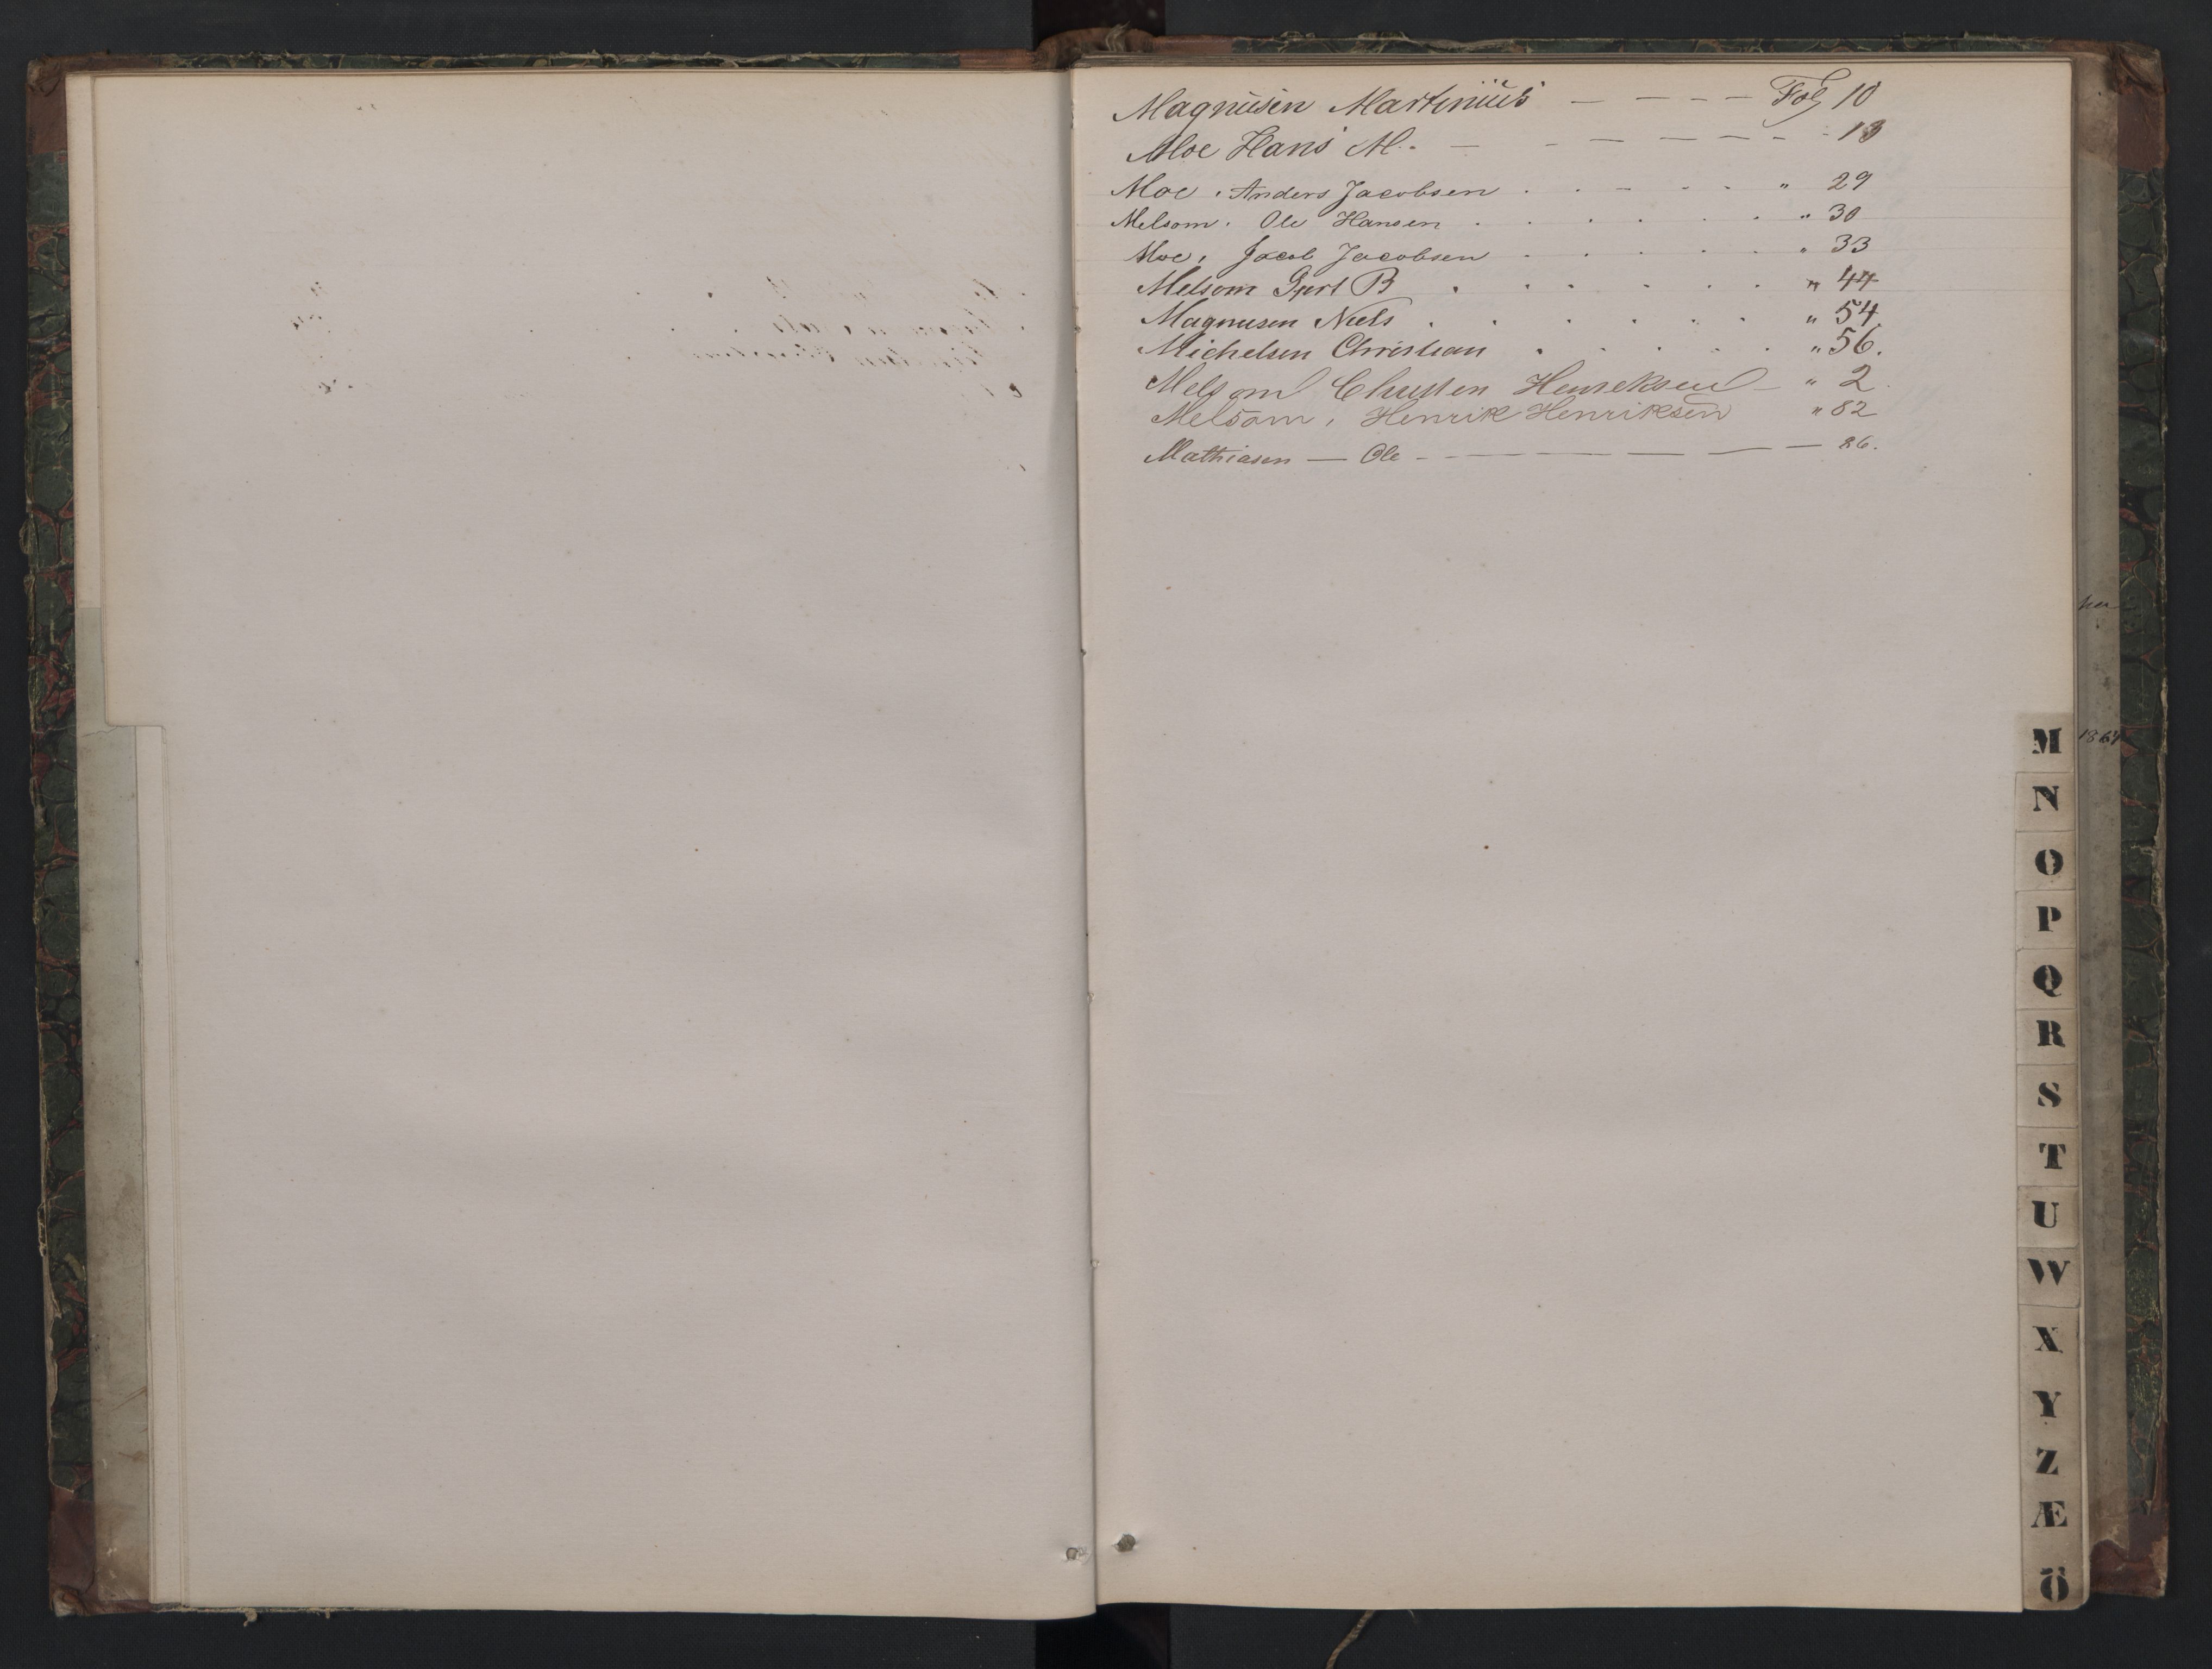 Magnusen Martinius — — — — — Fol 10
Moe Hans M. — - — — — - - 13
Moe, Anders Jacobsen . . — . . " 29
Melsom, Ole Hansen . . . . . . . " 30
Moe, Jacob Jacobsen . . . . . " 33
Melsom Gert B . . . . . . " 44
Magnusen Niels . . . . . . " 54
Michelsen Christian . . . . . " 56.
Melsom Christen Henriksen — " 2
Melsom, Henrik Henriksen " 82
Mathiasen — Ole - — — — — — 86.
M
N
O
P
Q
R
S
T
U
W
X
Y
Z
Æ
Ö
1864